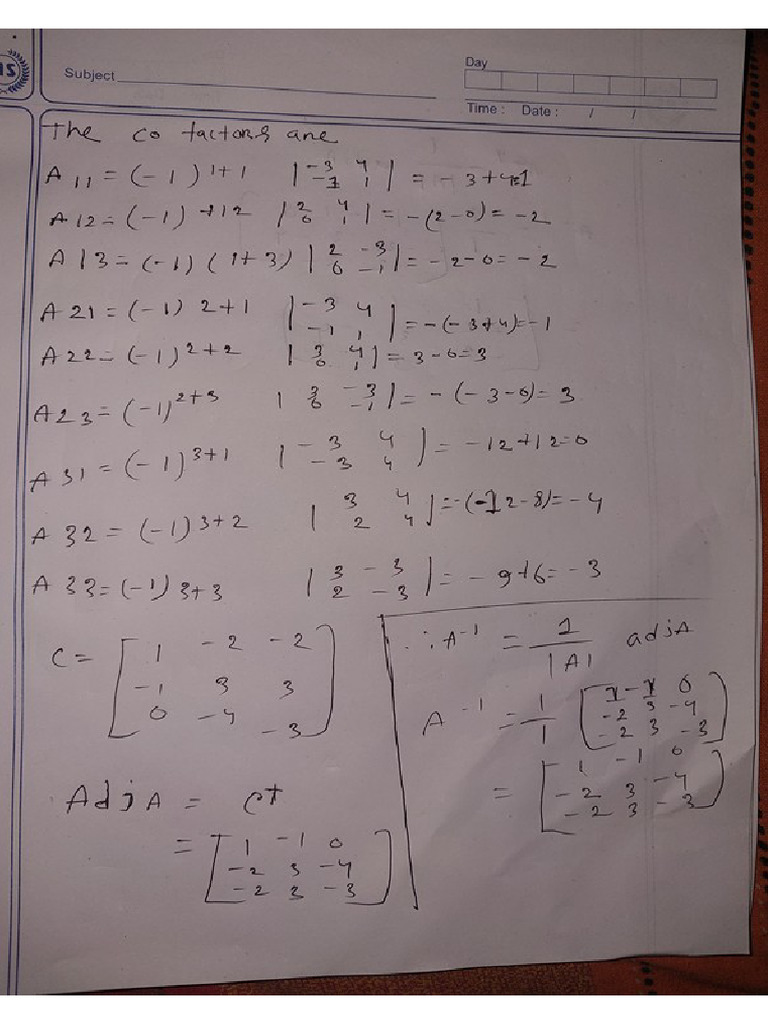 Subject
Day
Time : Date : / /
The co factors are
A 11 = (-1) 1+1 | -3 4 | = -3+4=1
-1 1
A 12 = (-1) +12 | 2 4 | = -(2-0) = -2
0 1
A 13 = (-1) (1+3) | 2 -3 | = -2-0 = -2
0 -1
A 21 = (-1) 2+1 | -3 4 | = -(-3+4) = -1
-1 1
A 22 = (-1) 2+2 | 3 4 | = 3-0 = 3
0 1
A 23 = (-1) 2+3 | 3 -3 | = -(-3-0) = 3
0 -1
A 31 = (-1) 3+1 | -3 4 | = -12+12=0
-3 4
A 32 = (-1) 3+2 | 3 4 | = -(12-8) = -4
2 4
A 33 = (-1) 3+3 | 3 -3 | = -9+6 = -3
2 -3
C = [ 1 -2 -2 ]
-1 3 3
0 -4 -3
Adj A = CT
= [ 1 -1 0 ]
-2 3 -4
-2 3 -3
∴ A -1 = 1 adj A
|A|
A -1 = 1 [ 1 -1 0 ]
1 -2 3 -4
-2 3 -3
= [ 1 -1 0 ]
-2 3 -4
-2 3 -3